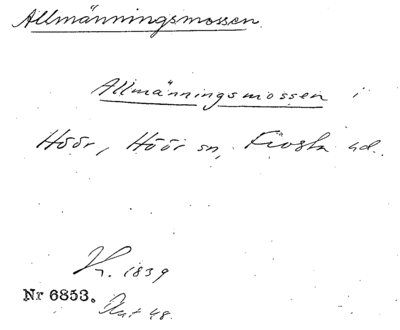 Allmänningsmossen.
Allmänningsmossen i
Höör, Höör sn, Frosta hd.
H. 1839
Nr 6853.
Ant 48.